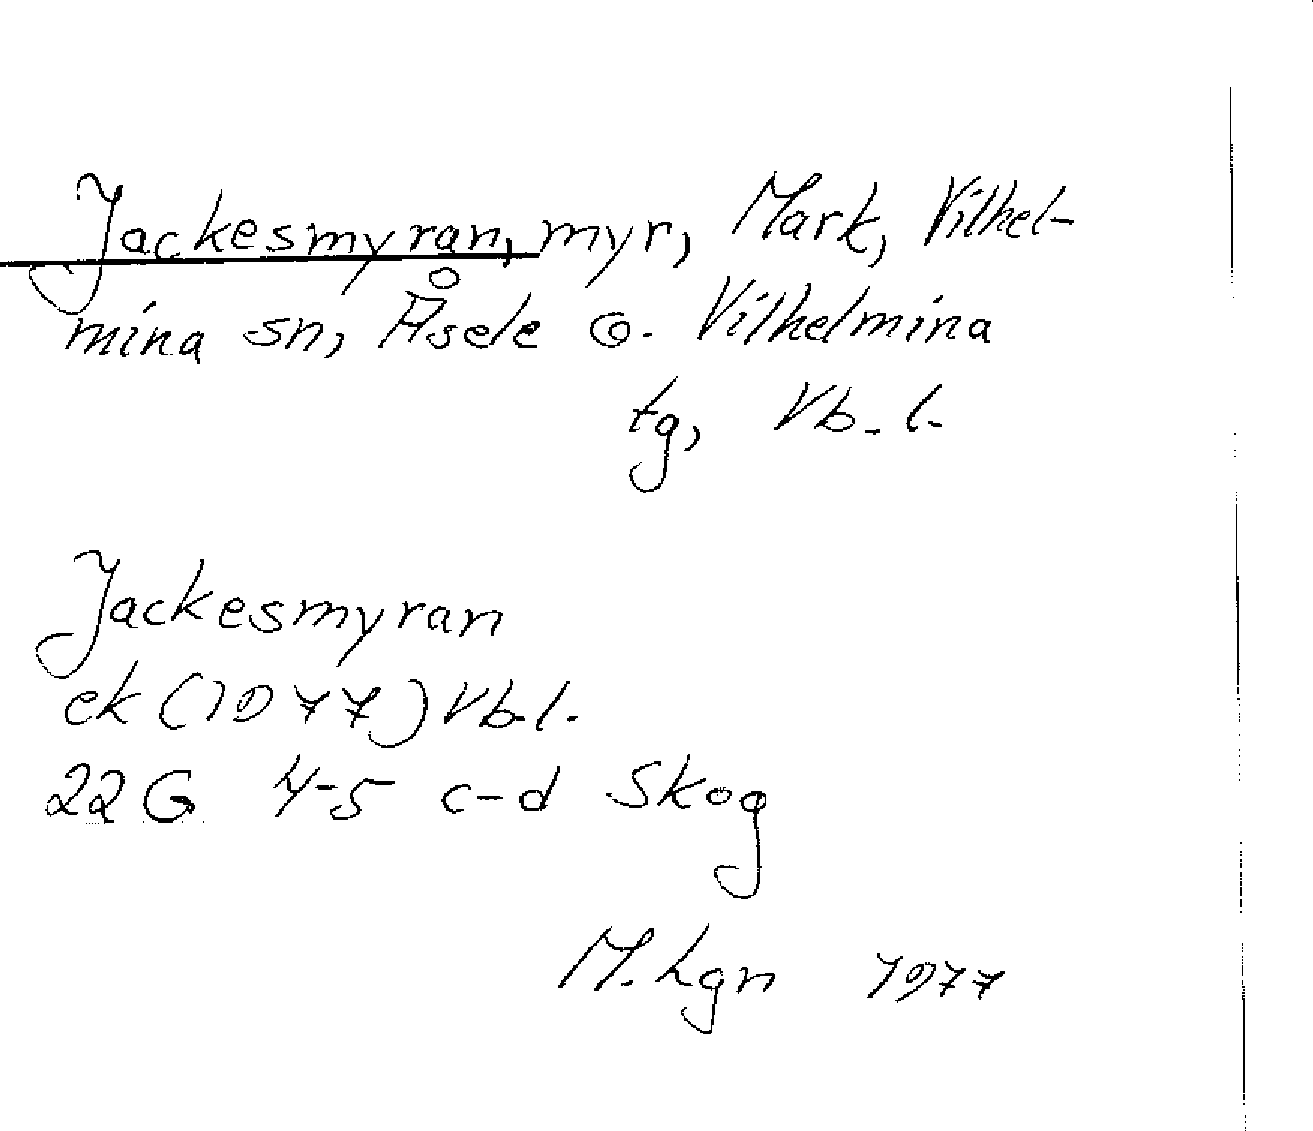 Jackesmyran, myr, Mark, Vilhel-
mina sn, Åsele o. Vilhelmina
tg, Vb. l.
Jackesmyran
ek (1977) Vb.l.
22 G 4-5 c-d Skog
M. Lgn 1977